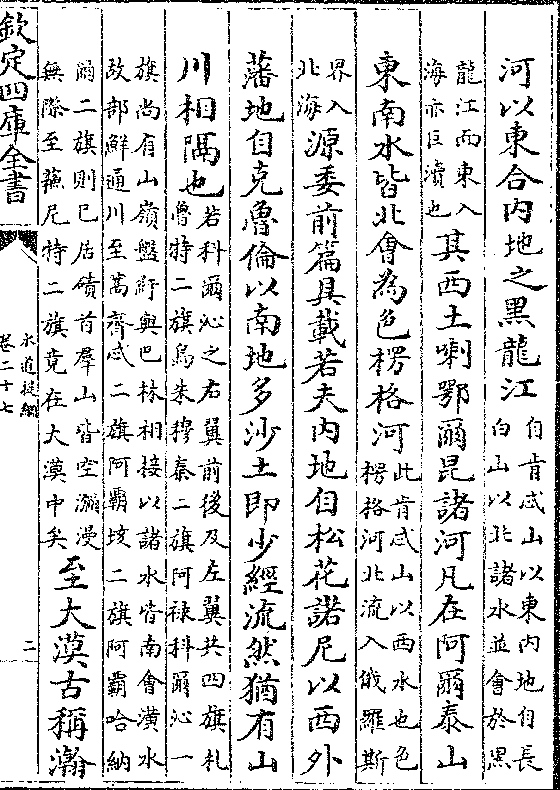 河以東合内地之黑龍江自肯忒山以東内地自長白山以北諸水並會於黑
龍江而東入海亦巨瀆也其西土喇鄂爾昆諸河凡在阿爾泰山
東南水皆北會為色楞格河此肯忒山以西水也色楞格河北流入俄羅斯
界入北海源委前篇具載若夫内地自松花諾尼以西外
藩地自克魯倫以南地多沙土即少經流然猶有山
川相隅也若科爾沁之右翼前後及左翼共四旗札魯特二旗烏朱穆秦二旗阿祿科爾沁一
旗尚有山嶺盤紆與巴林相接以諸水皆南會潢水故部鮮通川至蒿齊忒二旗阿霸垓二旗阿霸哈納
爾二旗則已居磧首羣山皆空瀰漫無際至蘇尼特二旗竟在大漠中矣至大漠古稱瀚
欽定四庫全書
水道提綱
卷二十七
二